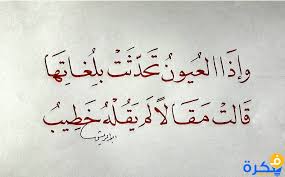 وإذَا العيونُ تحَدَّثَتْ بلُغَاتِهَا
قَالَتْ مَقَالًا لَم يَقُلْهُ خَطِيبُ
فكرة